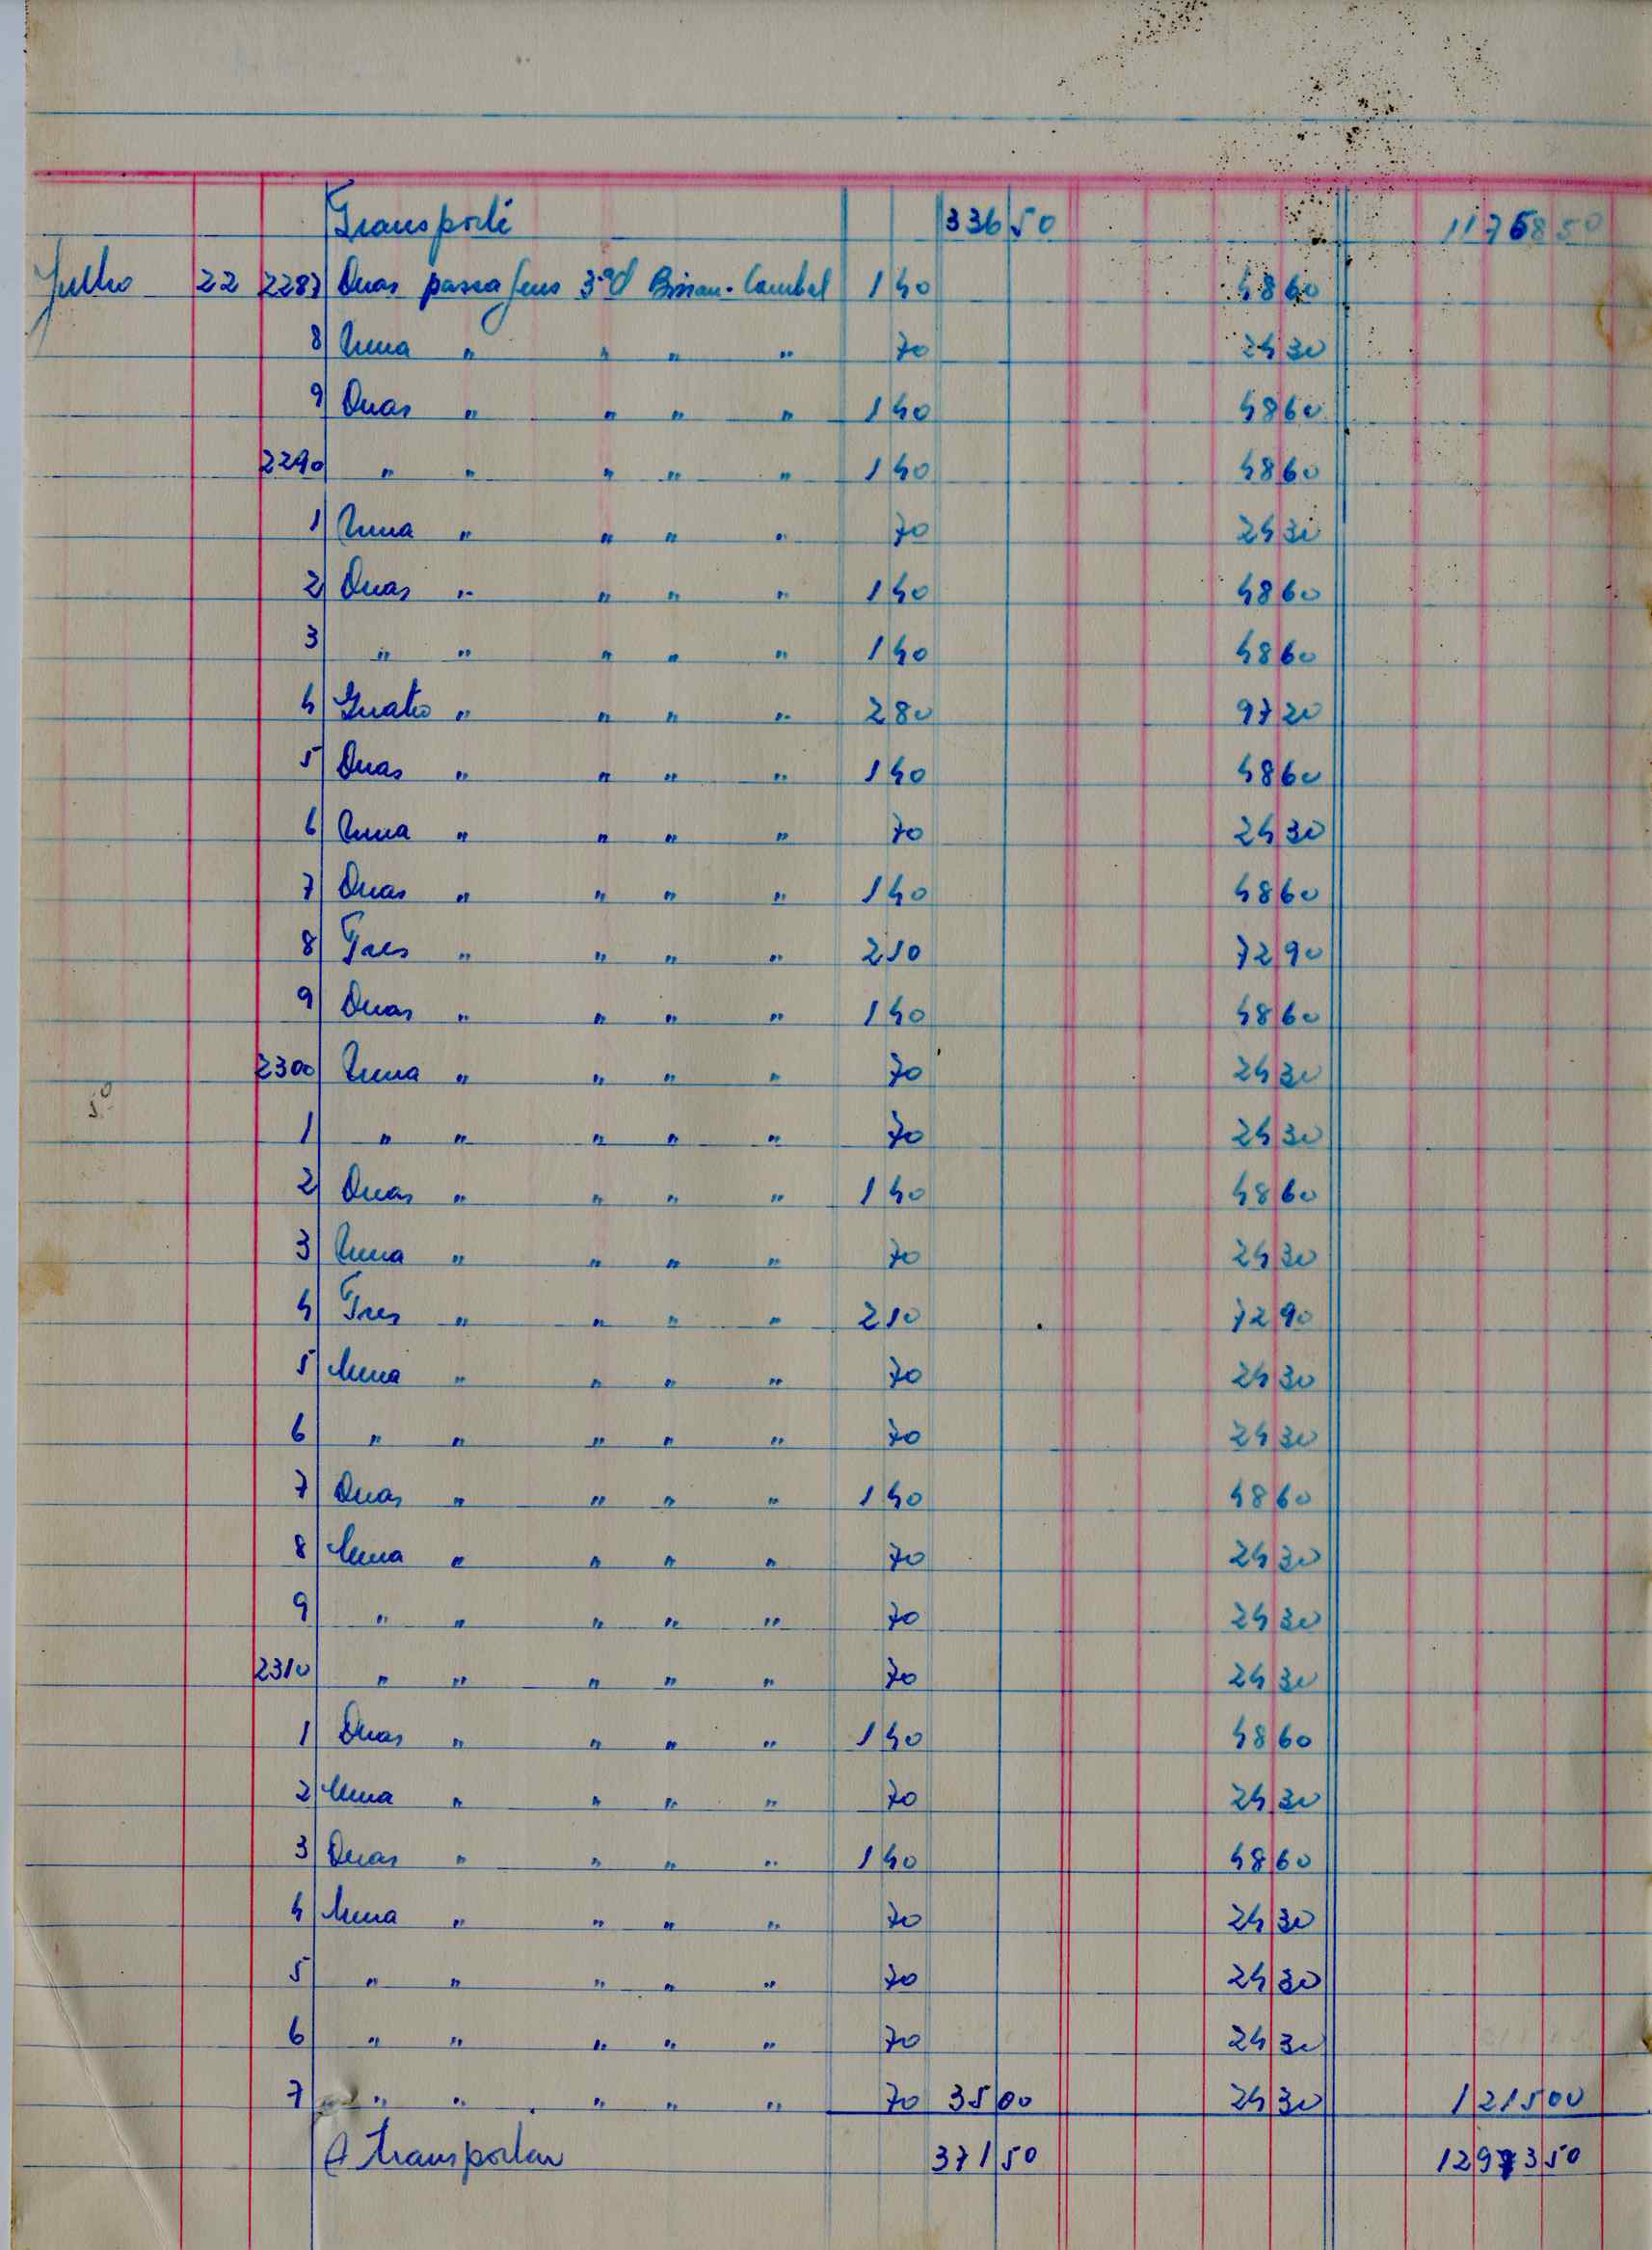 Transporte 336 50 11758 50
Julho 22 2287 Duas passagens 3ª cl Bissau-Cambel 1 40 48 60
8 Uma " " " " 70 24 30
9 Duas " " " " 1 40 48 60
2290 " " " " " 1 40 48 60
1 Uma " " " " 70 24 30
2 Duas " " " " 1 40 48 60
3 " " " " " 1 40 48 60
4 Quatro " " " " 2 80 97 20
5 Duas " " " " 1 40 48 60
6 Uma " " " " 70 24 30
7 Duas " " " " 1 40 48 60
8 Tres " " " " 2 10 72 90
9 Duas " " " " 1 40 48 60
2300 Uma " " " " 70 24 30
5º
1 " " " " " 70 24 30
2 Duas " " " " 1 40 48 60
3 Uma " " " " 70 24 30
4 Tres " " " " 2 10 72 90
5 Uma " " " " 70 24 30
6 " " " " " 70 24 30
7 Duas " " " " 1 40 48 60
8 Uma " " " " 70 24 30
9 " " " " " 70 24 30
2310 " " " " " 70 24 30
1 Duas " " " " 1 40 48 60
2 Uma " " " " 70 24 30
3 Duas " " " " 1 40 48 60
4 Uma " " " " 70 24 30
5 " " " " " 70 24 30
6 " " " " " 70 24 30
7 " " " " " 70 35 00 24 30 1215 00
A transportar 371 50 12973 50